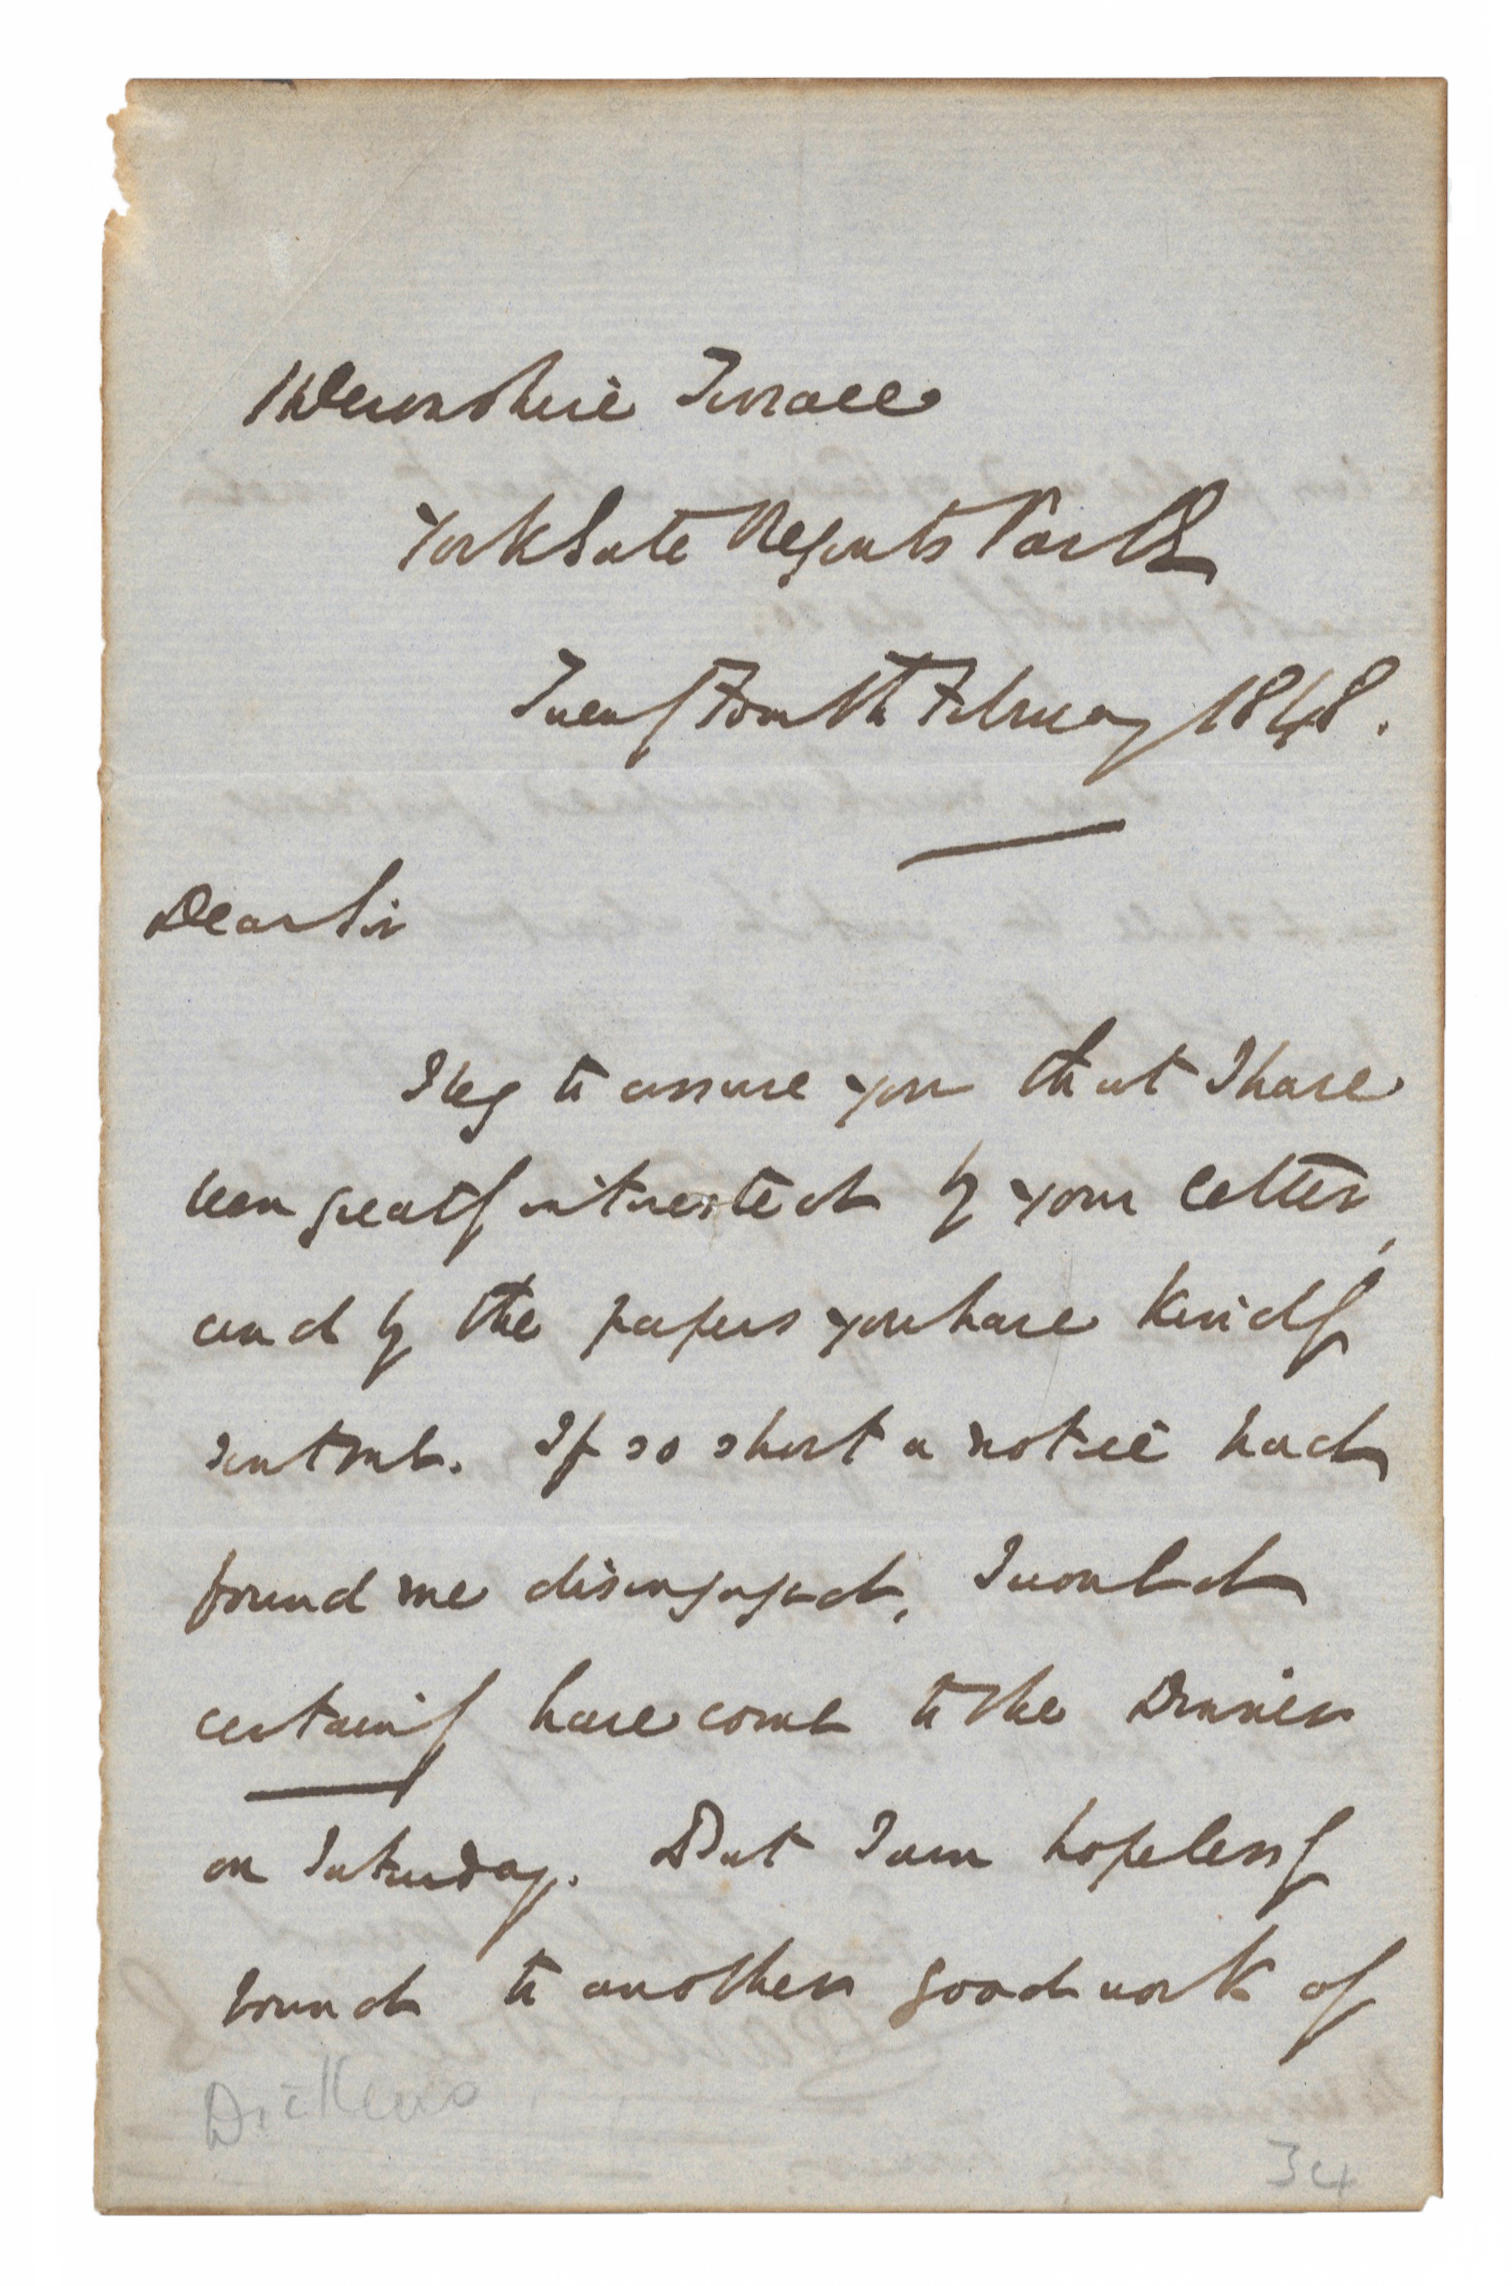 1 Devonshire Terrace
York Gate Regents Park
Twenty Fourth February 1848.
Dear Sir
I beg to assure you that I have
been greatly interested by your letter,
and by the papers you have kindly
sent me. If so short a notice had
found me disengaged, I would
certainly have come to the Dinner
on Saturday. But I am hopelessly
bound to another good work of
Dickens
34